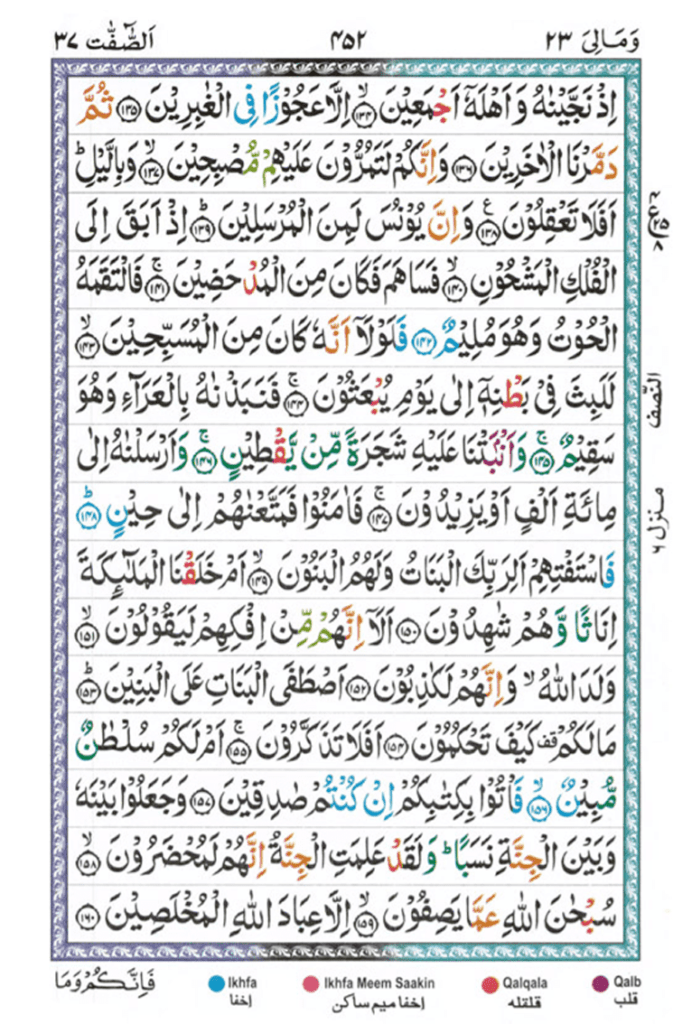 وَمَالِیَ ٢٣
٤٥٢
اَلصّٰٓفّٰت ٣٧
اِذْ نَجَّیْنٰهُ وَاَهْلَهٗۤ اَجْمَعِیْنَ ﴿١٣٤﴾ اِلَّا عَجُوْزًا فِی الْغٰبِرِیْنَ ﴿١٣٥﴾ ثُمَّ
دَمَّرْنَا الْاٰخَرِیْنَ ﴿١٣٦﴾ وَاِنَّكُمْ لَتَمُرُّوْنَ عَلَیْهِمْ مُّصْبِحِیْنَ ﴿١٣٧﴾ وَبِالَّیْلِ ؕ
اَفَلَا تَعْقِلُوْنَ ﴿١٣٨﴾ وَاِنَّ یُوْنُسَ لَمِنَ الْمُرْسَلِیْنَ ﴿١٣٩﴾ اِذْ اَبَقَ اِلَی
الْفُلْكِ الْمَشْحُوْنِ ﴿١٤٠﴾ فَسَاهَمَ فَكَانَ مِنَ الْمُدْحَضِیْنَ ﴿١٤١﴾ فَالْتَقَمَهُ
الْحُوْتُ وَهُوَ مُلِیْمٌ ﴿١٤٢﴾ فَلَوْلَاۤ اَنَّهٗ كَانَ مِنَ الْمُسَبِّحِیْنَ ﴿١٤٣﴾
لَلَبِثَ فِیْ بَطْنِهٖۤ اِلٰی یَوْمِ یُبْعَثُوْنَ ﴿١٤٤﴾ فَنَبَذْنٰهُ بِالْعَرَآءِ وَهُوَ
سَقِیْمٌ ﴿١٤٥﴾ وَاَنْۢبَتْنَا عَلَیْهِ شَجَرَةً مِّنْ یَّقْطِیْنٍ ﴿١٤٦﴾ وَاَرْسَلْنٰهُ اِلٰی
مِائَةِ اَلْفٍ اَوْ یَزِیْدُوْنَ ﴿١٤٧﴾ فَاٰمَنُوْا فَمَتَّعْنٰهُمْ اِلٰی حِیْنٍ ﴿١٤٨﴾
فَاسْتَفْتِهِمْ اَلِرَبِّكَ الْبَنَاتُ وَلَهُمُ الْبَنُوْنَ ﴿١٤٩﴾ اَمْ خَلَقْنَا الْمَلٰٓىِٕكَةَ
اِنَاثًا وَّهُمْ شٰهِدُوْنَ ﴿١٥٠﴾ اَلَاۤ اِنَّهُمْ مِّنْ اِفْكِهِمْ لَیَقُوْلُوْنَ ﴿١٥١﴾
وَلَدَ اللّٰهُ ۙ وَاِنَّهُمْ لَكٰذِبُوْنَ ﴿١٥٢﴾ اَصْطَفَی الْبَنَاتِ عَلَی الْبَنِیْنَ ﴿١٥٣﴾
مَا لَكُمْ ۫ كَیْفَ تَحْكُمُوْنَ ﴿١٥٤﴾ اَفَلَا تَذَكَّرُوْنَ ﴿١٥٥﴾ اَمْ لَكُمْ سُلْطٰنٌ
مُّبِیْنٌ ﴿١٥٦﴾ فَاْتُوْا بِكِتٰبِكُمْ اِنْ كُنْتُمْ صٰدِقِیْنَ ﴿١٥٧﴾ وَجَعَلُوْا بَیْنَهٗ
وَبَیْنَ الْجِنَّةِ نَسَبًا ؕ وَلَقَدْ عَلِمَتِ الْجِنَّةُ اِنَّهُمْ لَمُحْضَرُوْنَ ﴿١٥٨﴾
سُبْحٰنَ اللّٰهِ عَمَّا یَصِفُوْنَ ﴿١٥٩﴾ اِلَّا عِبَادَ اللّٰهِ الْمُخْلَصِیْنَ ﴿١٦٠﴾
النّصف
منزل ٦
فَاِنَّكُمْ وَمَا
Ikhfa
إخفا
Ikhfa Meem Saakin
إخفا میم ساکن
Qalqala
قلقله
Qalb
قلب